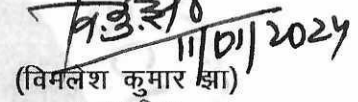 वि.कु.झा
11/01/2024
(विमलेश कुमार झा)